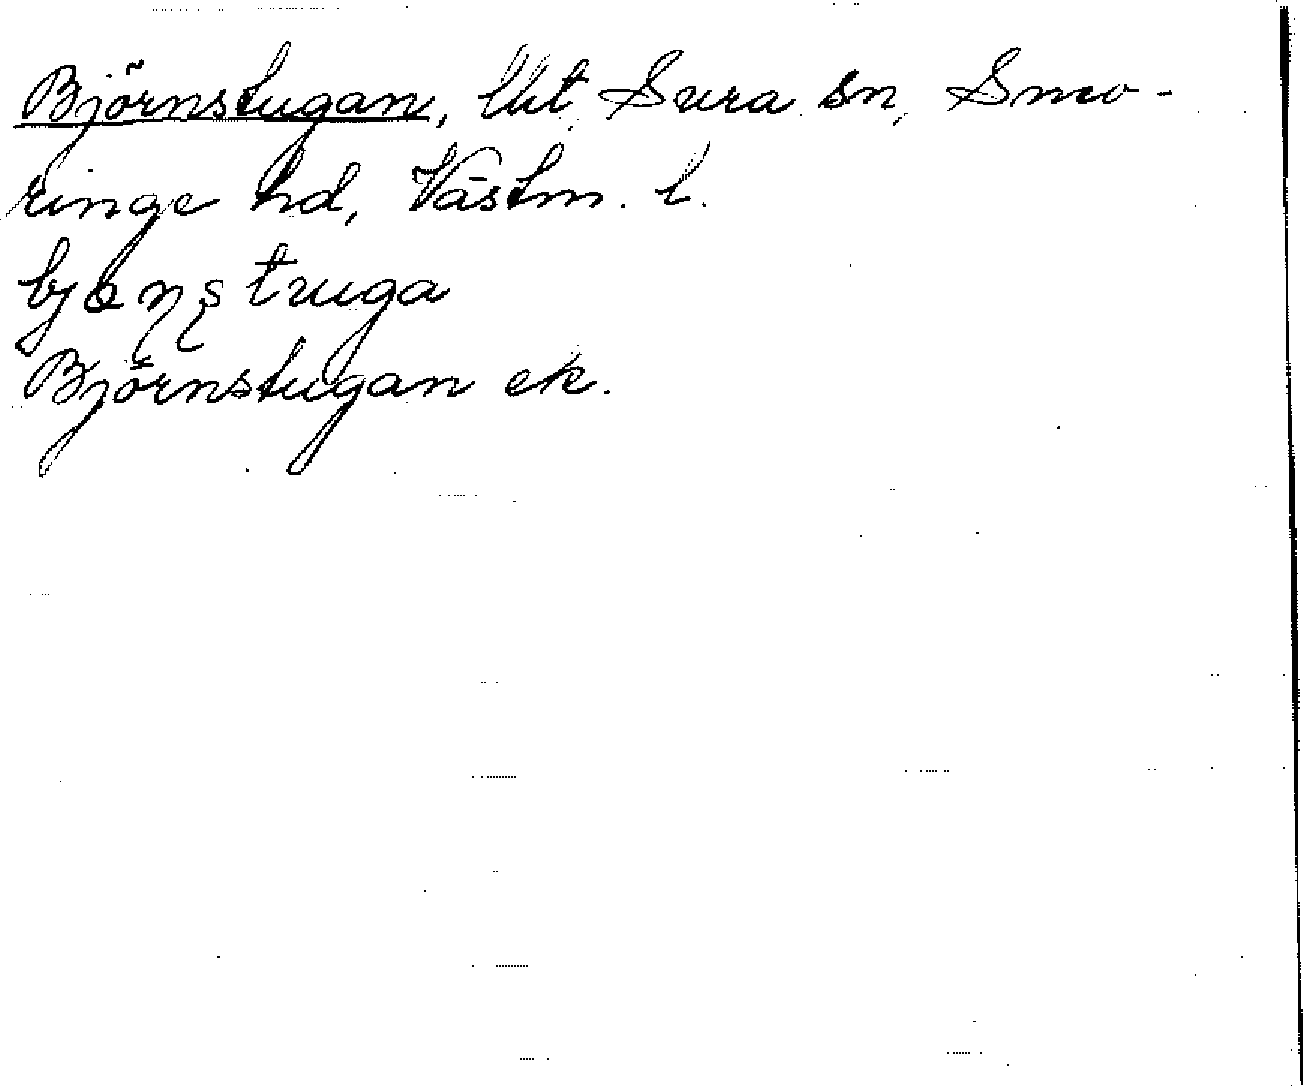 Björnstugan, lht, Sura sn, Snev-
ringe hd, Västm. l.
bjɵɳʂtuga
Björnstugan ek.